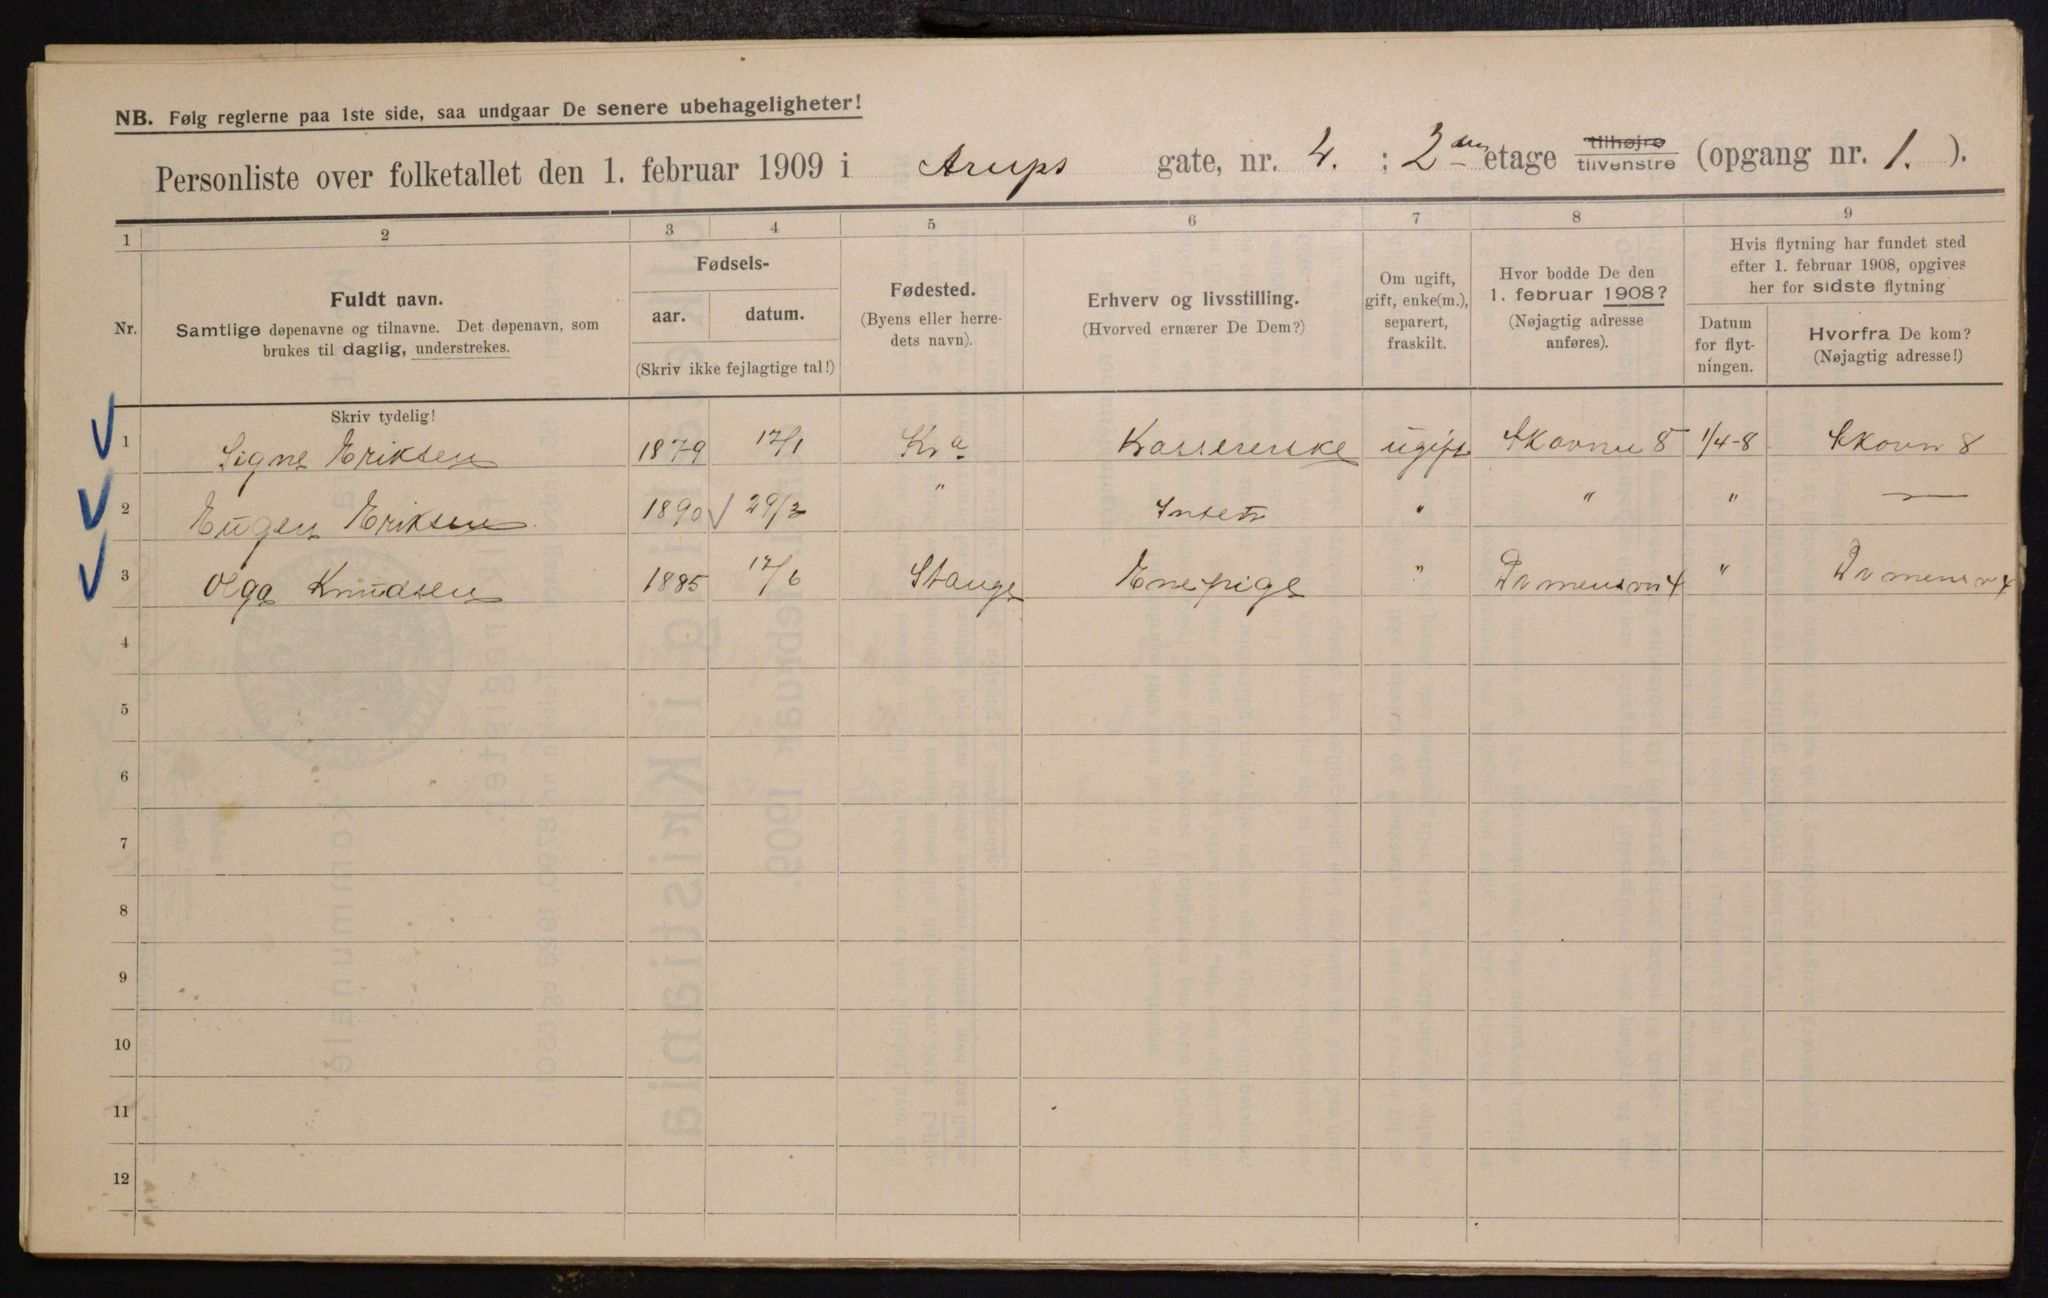 NB. Følg reglerne paa 1ste side, saa undgaar De senere ubehageligheter!
Personliste over folketallet den 1. februar 1909 i Arups gate, nr. 4. : 2den etage tilhøjre tilvenstre (opgang nr. 1. ).
1 2 3 4 5 6 7 8 9
Nr. Fuldt navn. Samtlige døpenavne og tilnavne. Det døpenavn, som brukes til daglig, understrekes.
Fødsels- aar. datum. (Skriv ikke fejlagtige tal!)
Fødested. (Byens eller herredets navn).
Erhverv og livsstilling. (Hvorved ernærer De Dem?)
Om ugift, gift, enke(m.), separert, fraskilt.
Hvor bodde De den 1. februar 1908? (Nøjagtig adresse anføres).
Hvis flytning har fundet sted efter 1. februar 1908, opgives her for sidste flytning
Datum for flytningen.
Hvorfra De kom? (Nøjagtig adresse!)
Skriv tydelig!
1 Signe Eriksen 1879 17/1 Kra Kassererske ugift Skovnu 8 1/4-8 Skovn 8
2 Eugen Eriksen 1890 29/3 " " " "
3 Olga Knudsen 1885 17/6 Stange Enepige " "
4
5
6
7
8
9
10
11
12